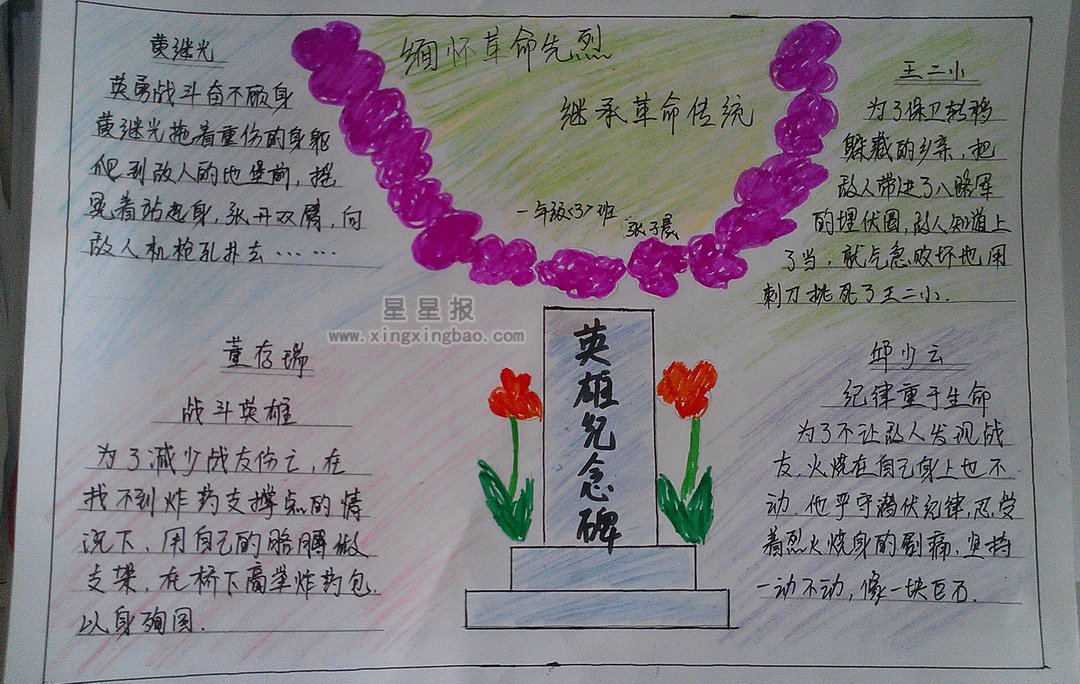 缅怀革命先烈
继承革命传统
一年级<3>班
张子晨
黄继光
英勇战斗奋不顾身
黄继光拖着重伤的身躯
爬到敌人的地堡前，摇
晃着站起身，张开双臂，向
敌人机枪孔扑去……
王二小
为了保卫转移
躲藏的乡亲，把
敌人带进了八路军
的埋伏圈，敌人知道上
了当，就气急败坏地用
刺刀挑死了王二小.
星星报
www.xingxingbao.com
董存瑞
战斗英雄
为了减少战友伤亡，在
找不到炸药支撑点的情
况下，用自己的胳膊做
支架，在桥下高举炸药包.
以身殉国.
英雄纪念碑
邱少云
纪律重于生命
为了不让敌人发现战
友，火烧在自己身上也不
动.他严守潜伏纪律，忍受
着烈火烧身的剧痛，坚持
一动不动，像一块巨石.